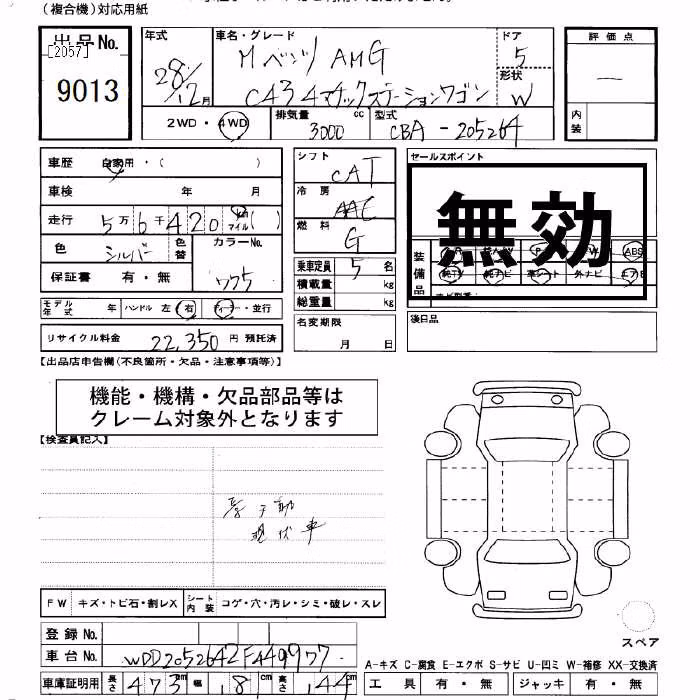 (複合機)対応用紙
出品No.
[2057]
9013
年式
28/12月
車名・グレード
Mベンツ AMG
C43 4マチックステーションワゴン
ドア
5
形状
W
評価点
—
内装
2WD・4WD
排気量
3000
cc
型式
CBA-205264
車歴
自家用・( )
車検
年 月
走行
5万6千420
km
マイル
( )
色
シルバー
色替
カラーNo.
775
保証書
有・無
モデル年式
年
ハンドル 左 右
ディーラー・並行
リサイクル料金
22,350
円 預託済
シフト
CAT
冷房
AAC
燃料
G
乗車定員
5
名
積載量
kg
総重量
kg
名変期限
月 日
セールスポイント
無効
装備品
ABS
純TV 純ナビ 革シート 外ナビ エアB
後日品
【出品店申告欄(不良箇所・欠品・注意事項等)】
機能・機構・欠品部品等は
クレーム対象外となります
【検査員記入】
現状車
FW
キズ・トビ石・割レX
シート内装
コゲ・穴・汚レ・シミ・破レ・スレ
登録No.
車台No.
WDD2052642F449977
車庫証明用
長さ
473
cm
幅
181
cm
高さ
144
cm
スペア
A-キズ C-腐食 E-エクボ S-サビ U-凹ミ W-補修 XX-交換済
工具
有・無
ジャッキ
有・無